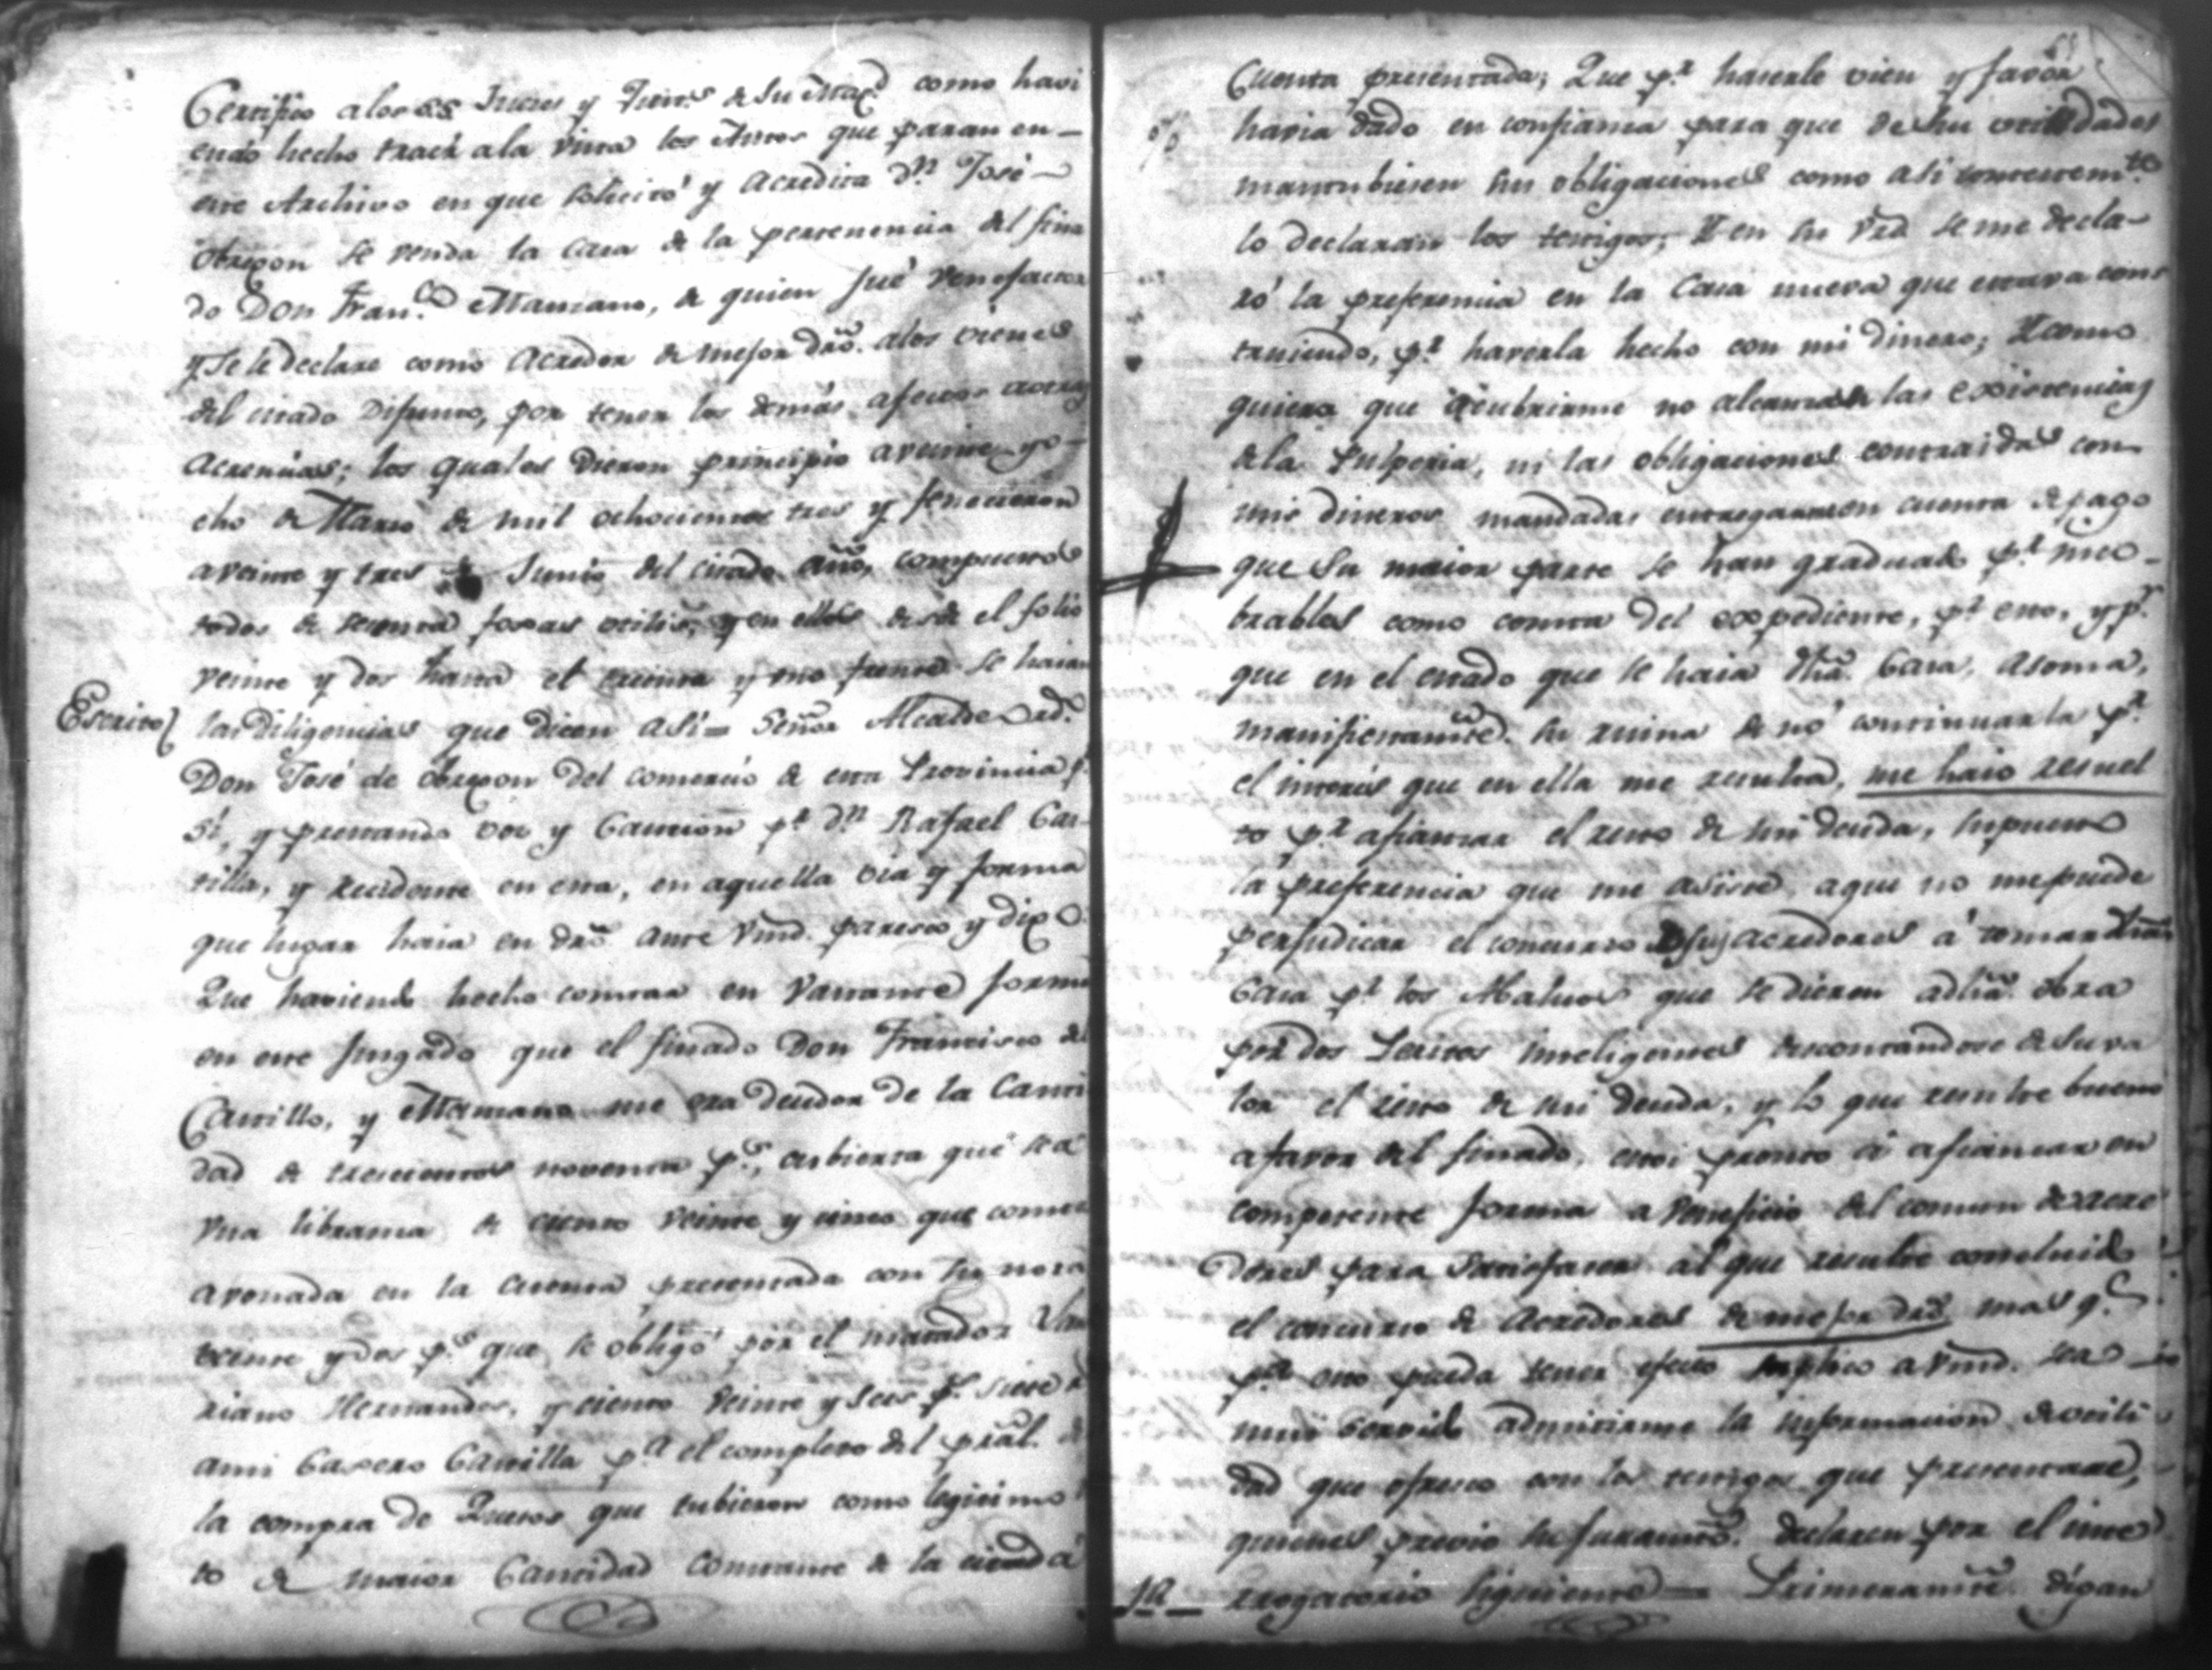 Certifico alos SS Jueces y Just.s de Su Mag.d como havi
endo hecho traer ala vista los Autos que paran en
este Archivo en que solicitó y acredita d.n José
Obregon se venda la casa de la pertenencia del fina
do Don Fran.co Manzano, de quien fué venefactor
y Se le declare como Acredor de mejor dro. alos vienes
del citado Difunto, por tener los demás afectos
Acrencias; los quales dieron principio aveinte y o
cho de Marzo de mil ochocientos tres y fenecieron
aveinte y tres de Junio del citado año, compuestos
todos de sesenta foxas utiles, y en ellos desde el folio
veinte y dos hasta el treinta y uno frente se haian
Escrito
las diligencias que dicen asi = Señor Alcalde Ord.o
Don José de Obregon del comercio de esta Provincia p.r
Sí, y prestando voz y Caucion p.r d.n Rafael Cas
tilla, y recidente en esta, en aquella via y forma
que lugar haia en dro. ante Vmd. paresco y dixo
Que haviendo hecho constar en vastante forma
en este Jusgado que el finado Don Francisco del
Castillo, y Manzano me era deudor de la Canti
dad de trescientos noventa p.s, cubierta que sea
una libranza de ciento veinte y cinco que consta
avonada en la Cuenta presentada con su nota
veinte y dos p.s que se obligó por el matador Va
riano Hernandes, y ciento veinte y seis p.s siete r
ami Casero Castilla p.a el completo del pral. de
la compra de Quesos que tubieron como legitimo
to de maior Cantidad constante de la citada
Cuenta presentada; Que p.r haserle vien y favor
havia dado en confianza para que de sus utilidades
mantubiesen sus obligaciones como asi contestem.te
lo declaran los testigos; Y en su vrd se me decla
ró la preferencia en la Casa nueva que estava cons
truiendo, p.r haverla hecho con mi dinero; Y como
quiera que acubrirme no alcanzan las existencias
dela Pulperia, ni las obligaciones contraidas con
mis dineros mandadas entregarme en cuenta de pago
que Su maior parte se han graduado p.r inco
brables como consta del expediente, p.r esto, y p.r
que en el estado que se haia dha. Casa, asoma,
manifiestamte. su ruina de no continuarla p.r
el interés que en ella me resulta, me haio resuel
to p.r afianzar el resto de mi deuda, supuesto
la preferencia que me asiste aque no me puede
perjudicar el concurso de sus acredores á tomar dha
Casa p.r los Abaluos que se dieren adha. obra
por dos Peritos inteligentes descontandose de su va
lor el resto de mi deuda, y lo que resulte bueno
afavor del finado, estoi pronto á afianzar en
competente forma a veneficio del comun de acre
dores para satisfacer al que resulte concluido
el concurso de acredores de mejor dro. mas q.e
p.a esto pueda tener efecto suplico a Vmd. sea
mui servido admitirme la informacion de utili
dad que ofresco con los testigos que presentare,
quienes previo su juramto. declaren por el inte
1a rrogatorio siguiente = Primeramte. digan